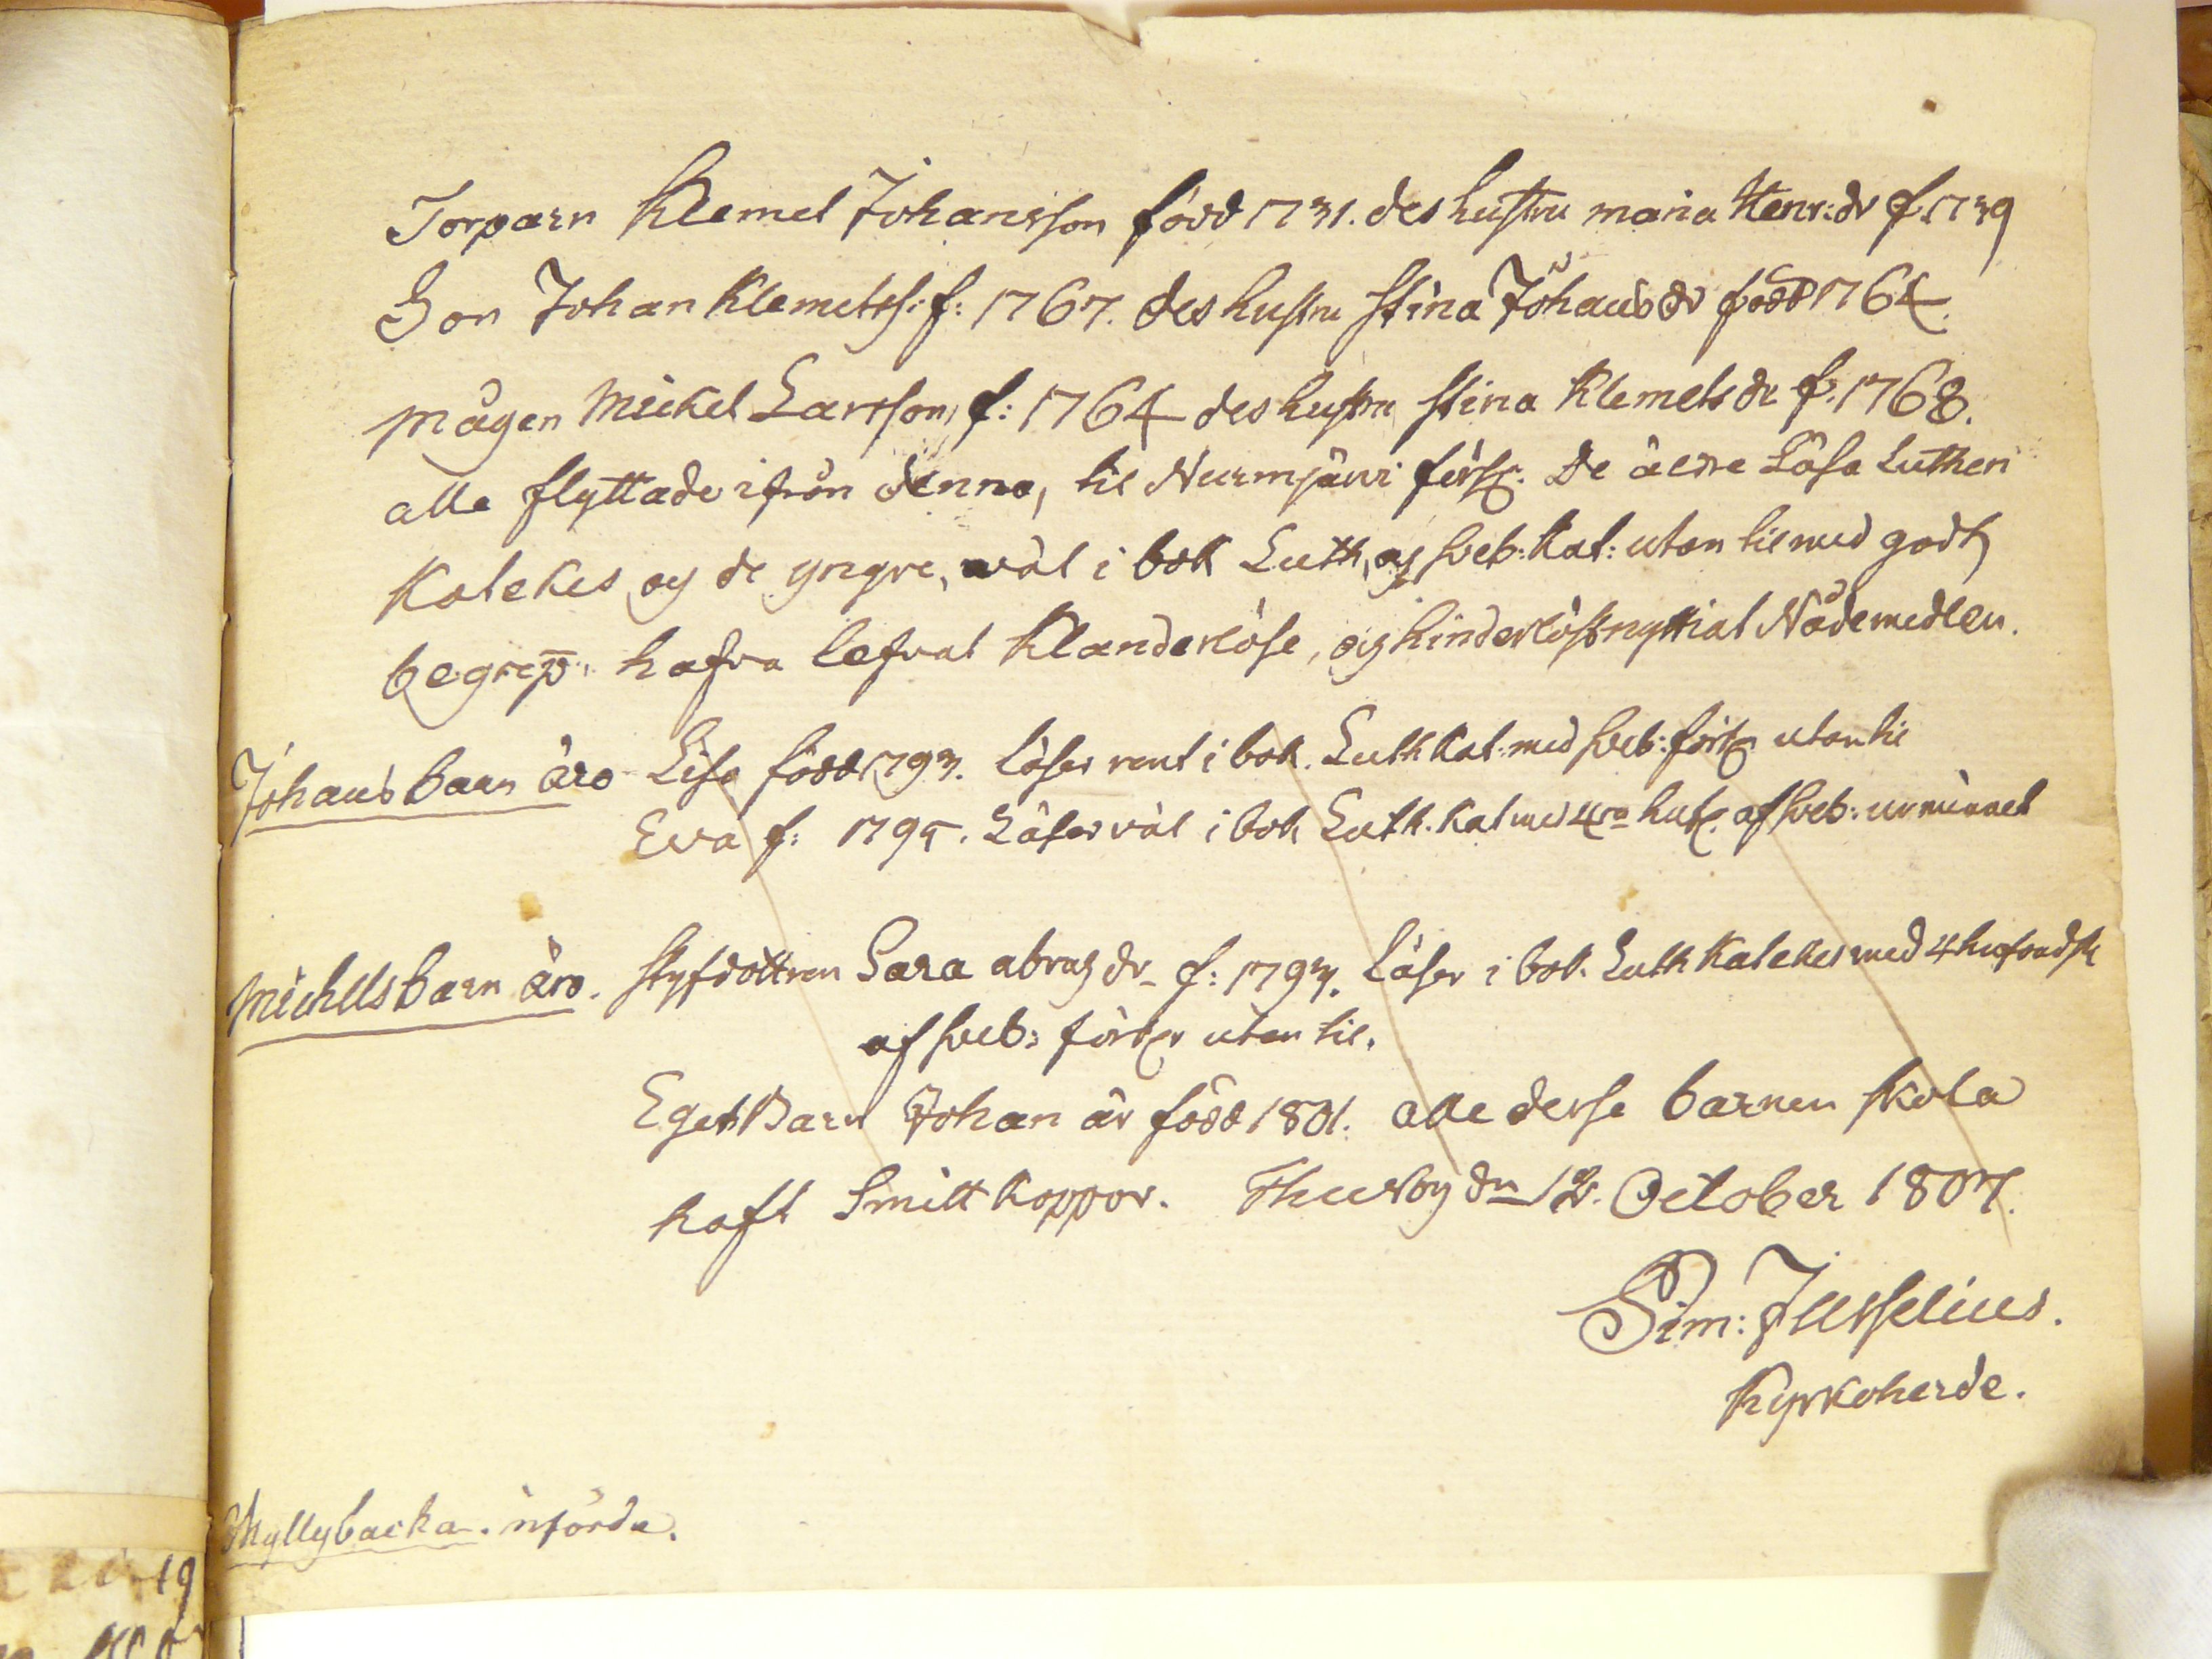 Torparn Klemet Johansson född 1731. des hustru maria Henr:dr f. 1739
Son Johan Klemetts: f: 1767. des hustru Stina Johansdr född 1764.
mågen Mickel Larsson, f: 1764 des hustru Stina Klemetsdr f: 1768.
alla flyttade ifrån denna, til Nurmjärvi förs:. De äldre Läsa Lutheri
Katekes og de yngre, väl i bok Luth, og Sveb: Kat: utan til med godt
begrep: hafva lefvat Klanderlöse, og hinderlöst nyttiat Nådemedlen.
Johans barn äro Lisa född 1793. läser rent i bok. Luth Kat: med Sveb: förk: utan til
Eva f: 1795. Läser väl i bok Luth. Kat med 4ra huf: af Sveb: ur minnet
Mickels barn äro. Styfdottren Sara abrah dr f: 1793. Läser i bok. Luth Katekes med 4 hufvudsk
af Sveb: förk: utan til.
Eget Barn Johan är född 1801. alle desse barnen skola
haft Smitt koppor. Thusby dn 12. October 1807.
Sim: Jusselius.
Kyrkoherde.
Myllybacka. införda.
19